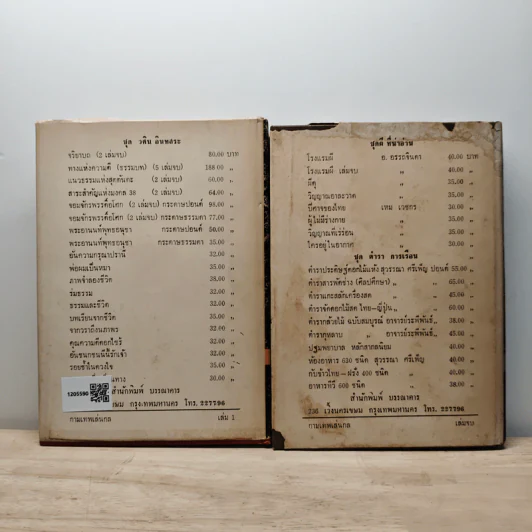 ชุด วศิน อินทสระ
จริยาบถ (2 เล่มจบ) 80.00 บาท
ทางแห่งความดี (ธรรมบท) (5 เล่มจบ) 188.00 „
แนวธรรมแห่งสุตตันตะ (2 เล่มจบ) 60.00 „
สาระสำคัญแห่งมงคล 38 (2 เล่มจบ) 64.00 „
จอมจักรพรรดิ์อโศก (2 เล่มจบ) กระดาษปอนด์ 98.00 „
จอมจักรพรรดิ์อโศก (2 เล่มจบ) กระดาษธรรมดา 77.00 „
พระอานนท์พุทธอนุชา กระดาษปอนด์ 50.00 „
พระอานนท์พุทธอนุชา กระดาษธรรมดา 35.00 „
อันความกรุณาปรานี 32.00 „
พ่อผมเป็นมหา 35.00 „
ภาพจำลองชีวิต 38.00 „
ร่มธรรม 32.00 „
ธรรมและชีวิต 32.00 „
บทเรียนจากชีวิต 35.00 „
จากวราถึงนภาพร 32.00 „
คุณความดีคอกไขร้ 32.00 „
อันชนกชนนีนี้รักเจ้า 30.00 „
รอยช้ำในดวงใจ 35.00 „
ทาง 30.00 „
1205590
สำนักพิมพ์ บรรณาคาร
เขษม กรุงเทพมหานคร โทร. 227796
กามเทพเล่นกล เล่ม 1
ชุดผี ที่น่าอ่าน
โรงแรมผี อ. อรรถจินดา 40.00 บาท
โรงแรมผี เล่มจบ „ 40.00 „
ผีดุ „ 35.00 „
วิญญาณอาละวาด „ 35.00 „
ปีศาจของไทย เหม เวชกร 30.00 „
ผู้ไม่มีร่างกาย „ 35.00 „
วิญญาณที่เร่ร่อน „ 35.00 „
ใครอยู่ในอากาศ „ 30.00 „
ชุด ตำรา การเรือน
ตำราประดิษฐ์ดอกไม้แห้ง สุวรรณา ศรีเพ็ญ ปอนด์ 55.00 „
ตำราสารพัดช่าง (ศิลปศึกษา) „ 65.00 „
ตำราแกะสลักเครื่องสด „ 45.00 „
ตำราจัดดอกไม้สดไทย-ญี่ปุ่น „ 60.00 „
ตำรากล้วยไม้ ฉบับสมบูรณ์ อาจารย์ระพีพันธุ์ 45.00 „
ตำรากุหลาบ „ อาจารย์ระพีพันธุ์ 38.00 „
ปฐมพยาบาล หลักสากลนิยม 40.00 „
ห้องอาหาร 630 ชนิด สุวรรณา ศรีเพ็ญ 40.00 „
กับข้าวไทย-ฝรั่ง 400 ชนิด „ 40.00 „
อาหารทิวี 600 ชนิด „ 38.00 „
สำนักพิมพ์ บรรณาคาร
236 เวิ้งนครเขษม กรุงเทพมหานคร โทร. 227796
กามเทพเล่นกล เล่มจบ